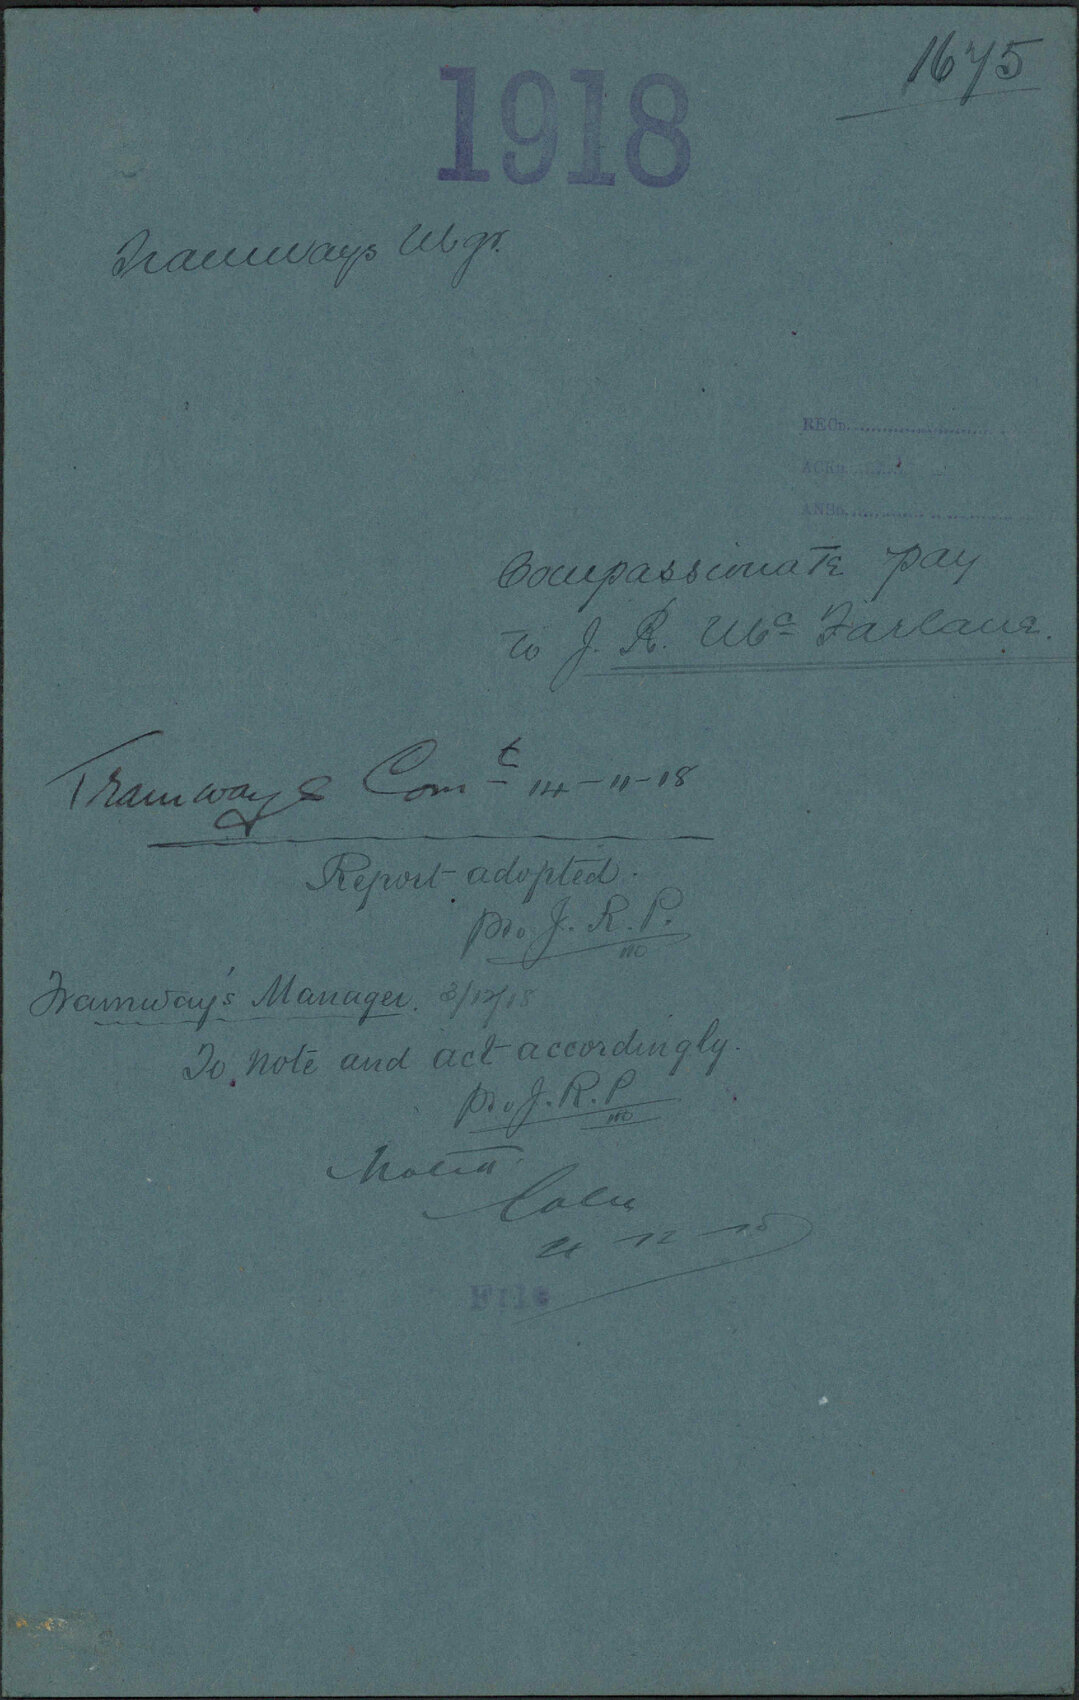 1675
1918
Tramways Mgr.
RECD.
ACKD.
ANSD.
Compassionate pay
to J. R. Mc Farlane.
Tramways Comt 14-11-18
Report adopted.
pro J. R. P.
Tramway's Manager. 3/12/18
To note and act accordingly.
pro J. R. P
Noted
4-12-18
File